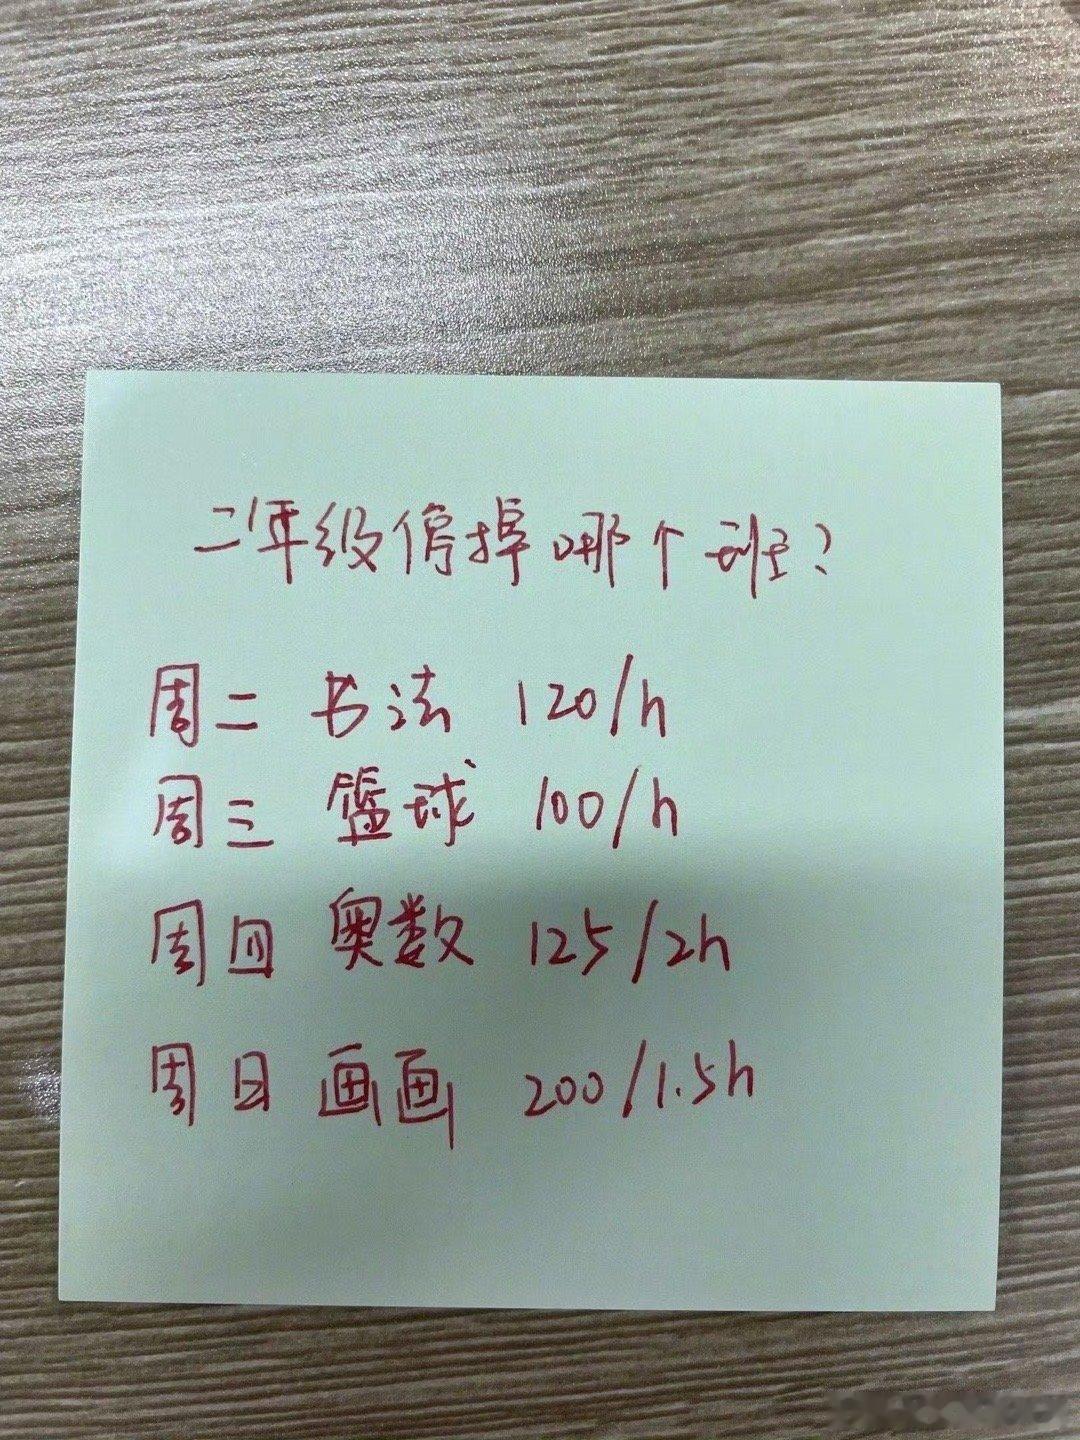 二年级停掉哪个班?
周二 书法 120/h
周三 篮球 100/h
周四 奥数 125/2h
周日 画画 200/1.5h